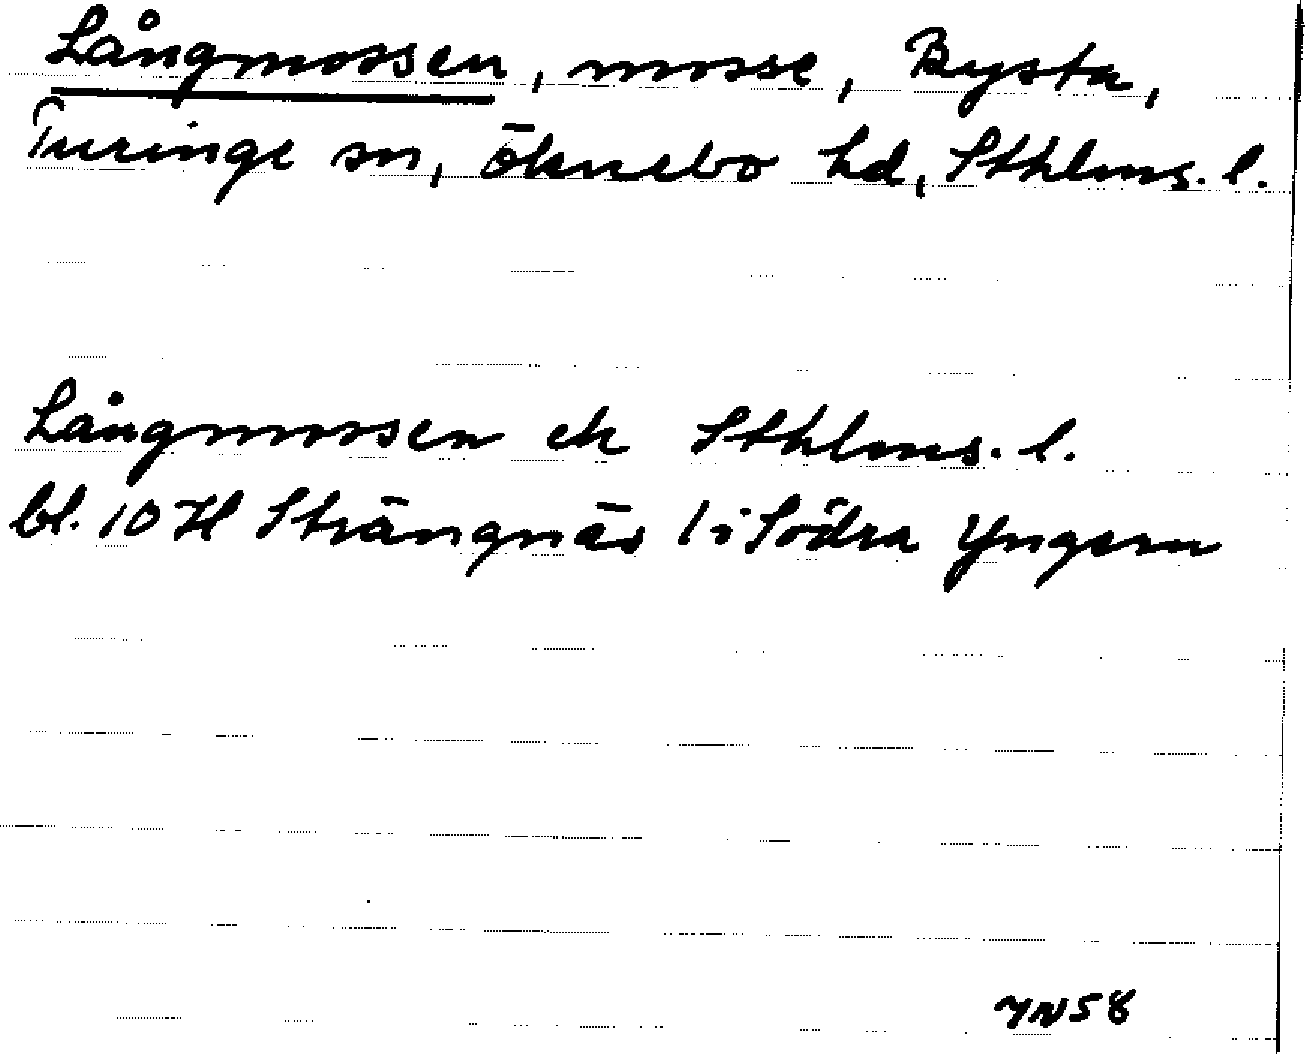 Långmossen, mosse, Bysta,
Turinge sn, Öknebo hd, Sthlms. l.
Långmossen ek Sthlms. l.
bl. 10 H Strängnäs 1 i Södra Yngern
YN58